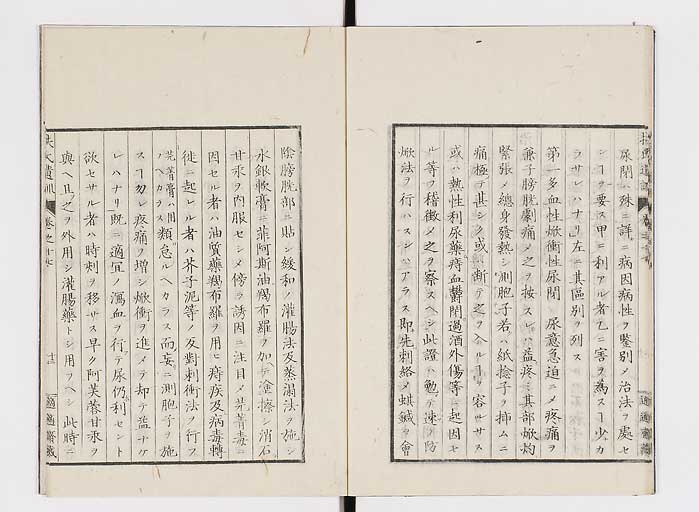 尿閉ハ殊ニ詳ニ病因病性ヲ鑒別メ治法ヲ處セ
シヿヲ要ス甲ニ利アル者乙ニ害ヲ爲スヿ少カ
ラサレハナリ左ニ其區別ヲ列ス
第一多血性焮衝性尿閉 尿意急迫ニメ疼痛ヲ
兼子膀胱劇痛メ之ヲ按スレハ益疼ミ其部焮灼
緊張メ總身發熱シ測胞子若ハ紙捻子ヲ挿ムニ
痛極テ甚シク或ハ斷テ之ヲ入ルヿヲ容サス
或ハ熱性利尿藥痔血鬱閉過酒外傷等ニ起因セ
ル等ヲ稽徴メ之ヲ察スヘシ此證ハ勉テ速ニ防
焮法ヲ行ハスンハアラス即先刺絡メ蜞鍼ヲ會
陰膀胱部ニ貼シ緩和ノ灌腸法及蒸溻法ヲ施シ
水銀軟膏ニ菲阿斯油羯布羅ヲ加テ塗擦シ消石
甘汞ヲ内服セシメ傍ラ誘因ニ注目メ芫菁毒ニ
因セル者ハ油質藥羯布羅ヲ用ヒ痔疾及病毒轉
徙ニ起レル者ハ芥子泥等ノ反對刺衝法ヲ行フ
芫菁膏ハ用ヘカラス類急ルヘカラス而妄ニ測胞子ヲ施
スヿ勿レ疼痛ヲ増シ焮衝ヲ進メテ却テ益ナケ
レハナリ既ニ適宜ノ瀉血ヲ行テ尿仍利セント
欲セサル者ハ時刻ヲ移サス早ク阿芙蓉甘汞ヲ
與ヘ且之ヲ外用シ灌腸藥トシ用フヘシ此時ニ
扶氏遺訓 卷之十七 十三 適適齋藏